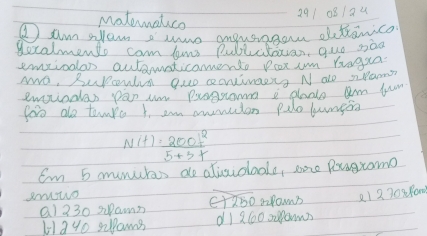 Matematica 29/08/24
① Um spam é uma mensagem eletrônica.
Geralmente com fins Publicitários, que são
enviados automaticamente por um Progra-
ma. Suponha que o número N de spams
enviados por um Programa é dado em fun-
ção do tempo t, em minutos pela função
N(t) = 200t²
5+3t
Em 5 minutos de atividade, esse Programa
enviou
a) 230 spams c) 250 spams e) 270 spams
b) 240 spams d) 260 spams